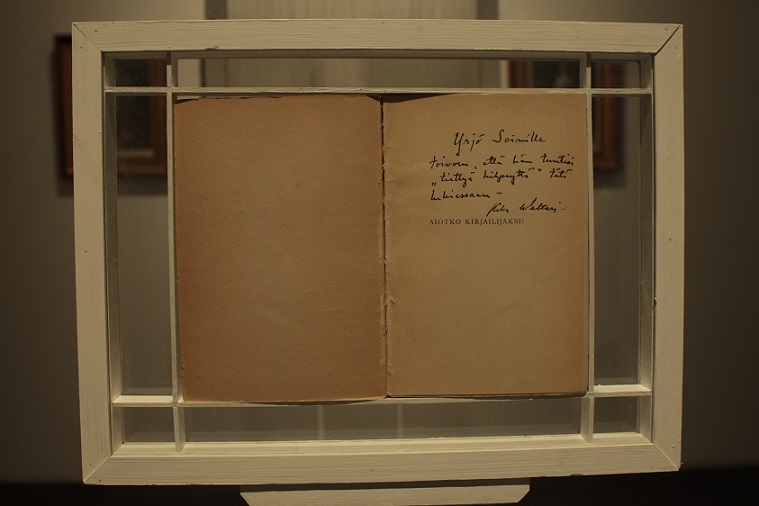 Yrjö Soinille
toivoen, että hän tuntisi
„tiettyä kiitollisuutta" tätä
lukiessaan –
Mika Waltari.
AIOTKO KIRJAILIJAKSI